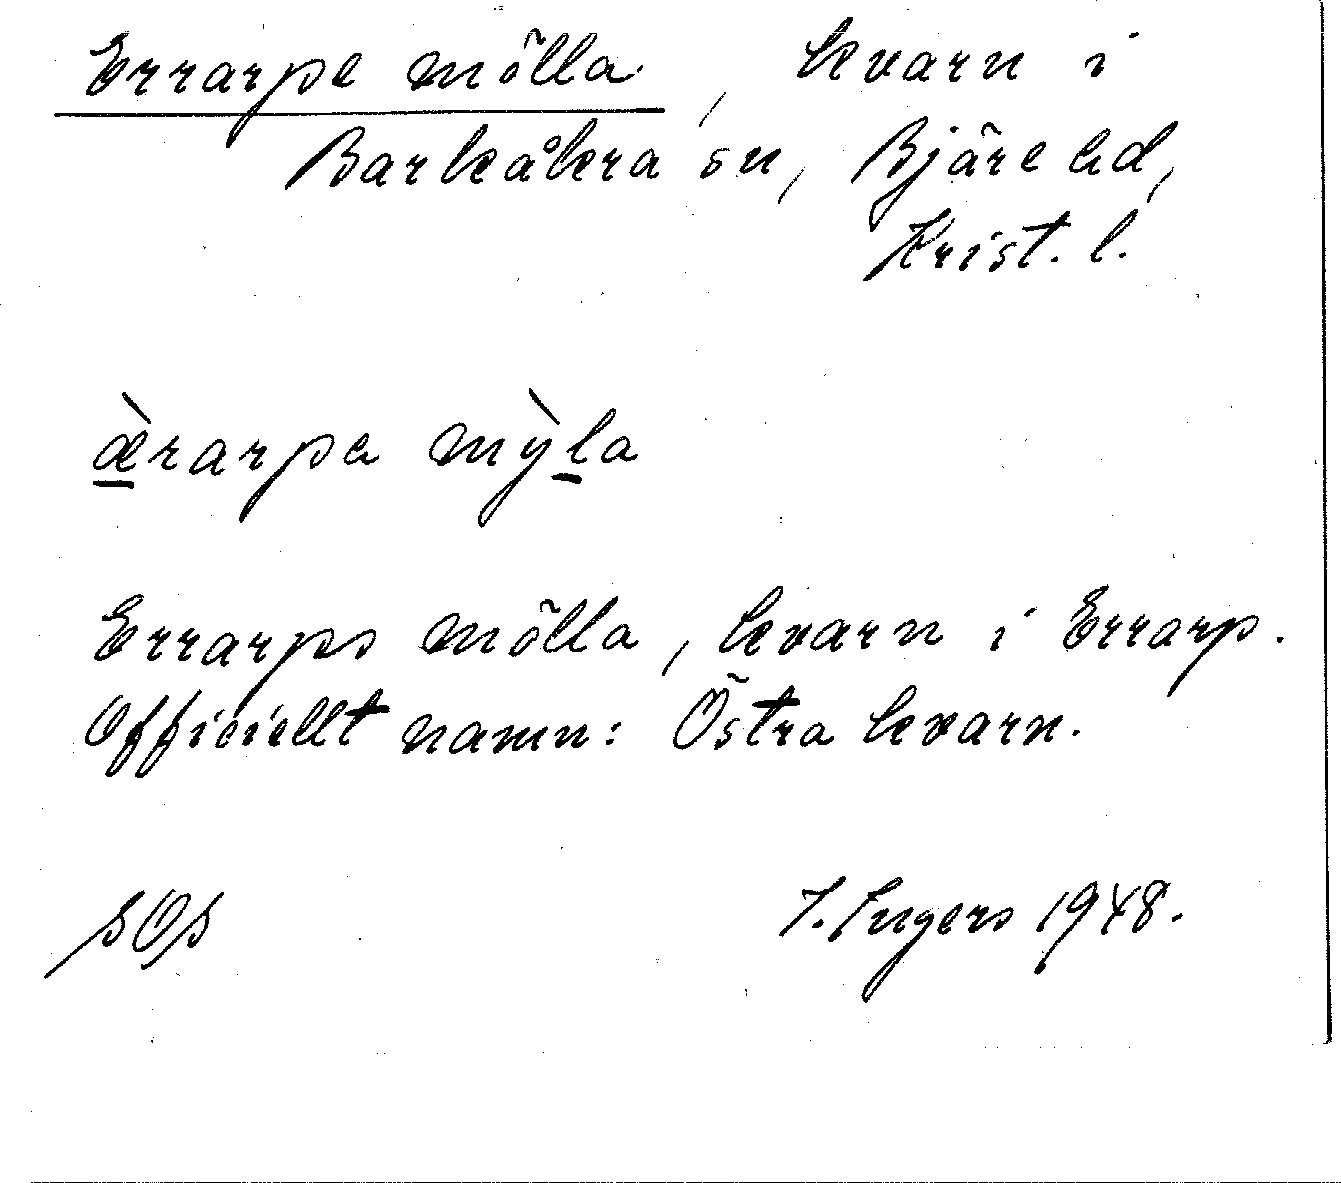 Errarpe mölla, kvarn i
Barkåkra sn, Bjäre hd,
Krist. l.
æ̀rarpa mỳla
Errarps mölla, kvarn i Errarp.
Officiellt namn: Östra kvarn.
SOS I. Ingers 1948.